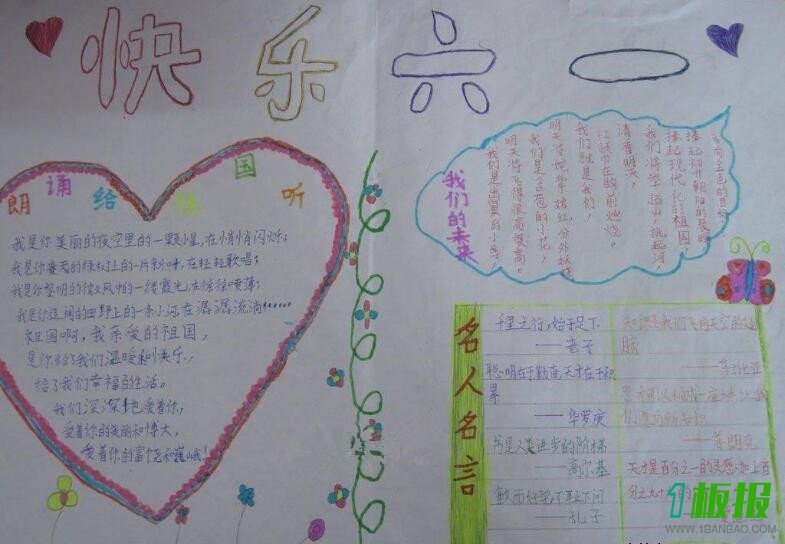 快乐六一
朗诵给祖国听
我是你美丽的夜空里的一颗小星,在悄悄闪烁;
我是你春天的绿树上的一片新叶,在轻轻歌唱;
我是你黎明的微风中的一缕霞光,在徐徐喷薄;
我是你辽阔的田野上的一条小河,在潺潺流淌……
祖国啊,我亲爱的祖国,
是你给了我们温暖和快乐,
给了我们幸福的生活。
我们深深地爱着你,
爱着你的美丽和博大,
爱着你的富饶和巍峨!
我们的未来
我们是出巢的小鸟,
明天将飞得很高很高。
我们是含苞的小花,
明天将
我们就是我们,
红领巾在胸前燃烧。
请看明天,
我们将
接起现代化的祖国,
接起初升朝阳的
名人名言
千里之行,始于足下
——老子
聪明在于勤奋,天才在于积
累
——华罗庚
书是人类进步的阶梯
——高尔基
敏而好学,不耻下问
——孔子
知识是我们飞向天空的翅
膀
——莎士比亚
——普朗克
天才是百分之一的灵感,加上百
分之九十
1板报
WWW.1BANBAO.COM